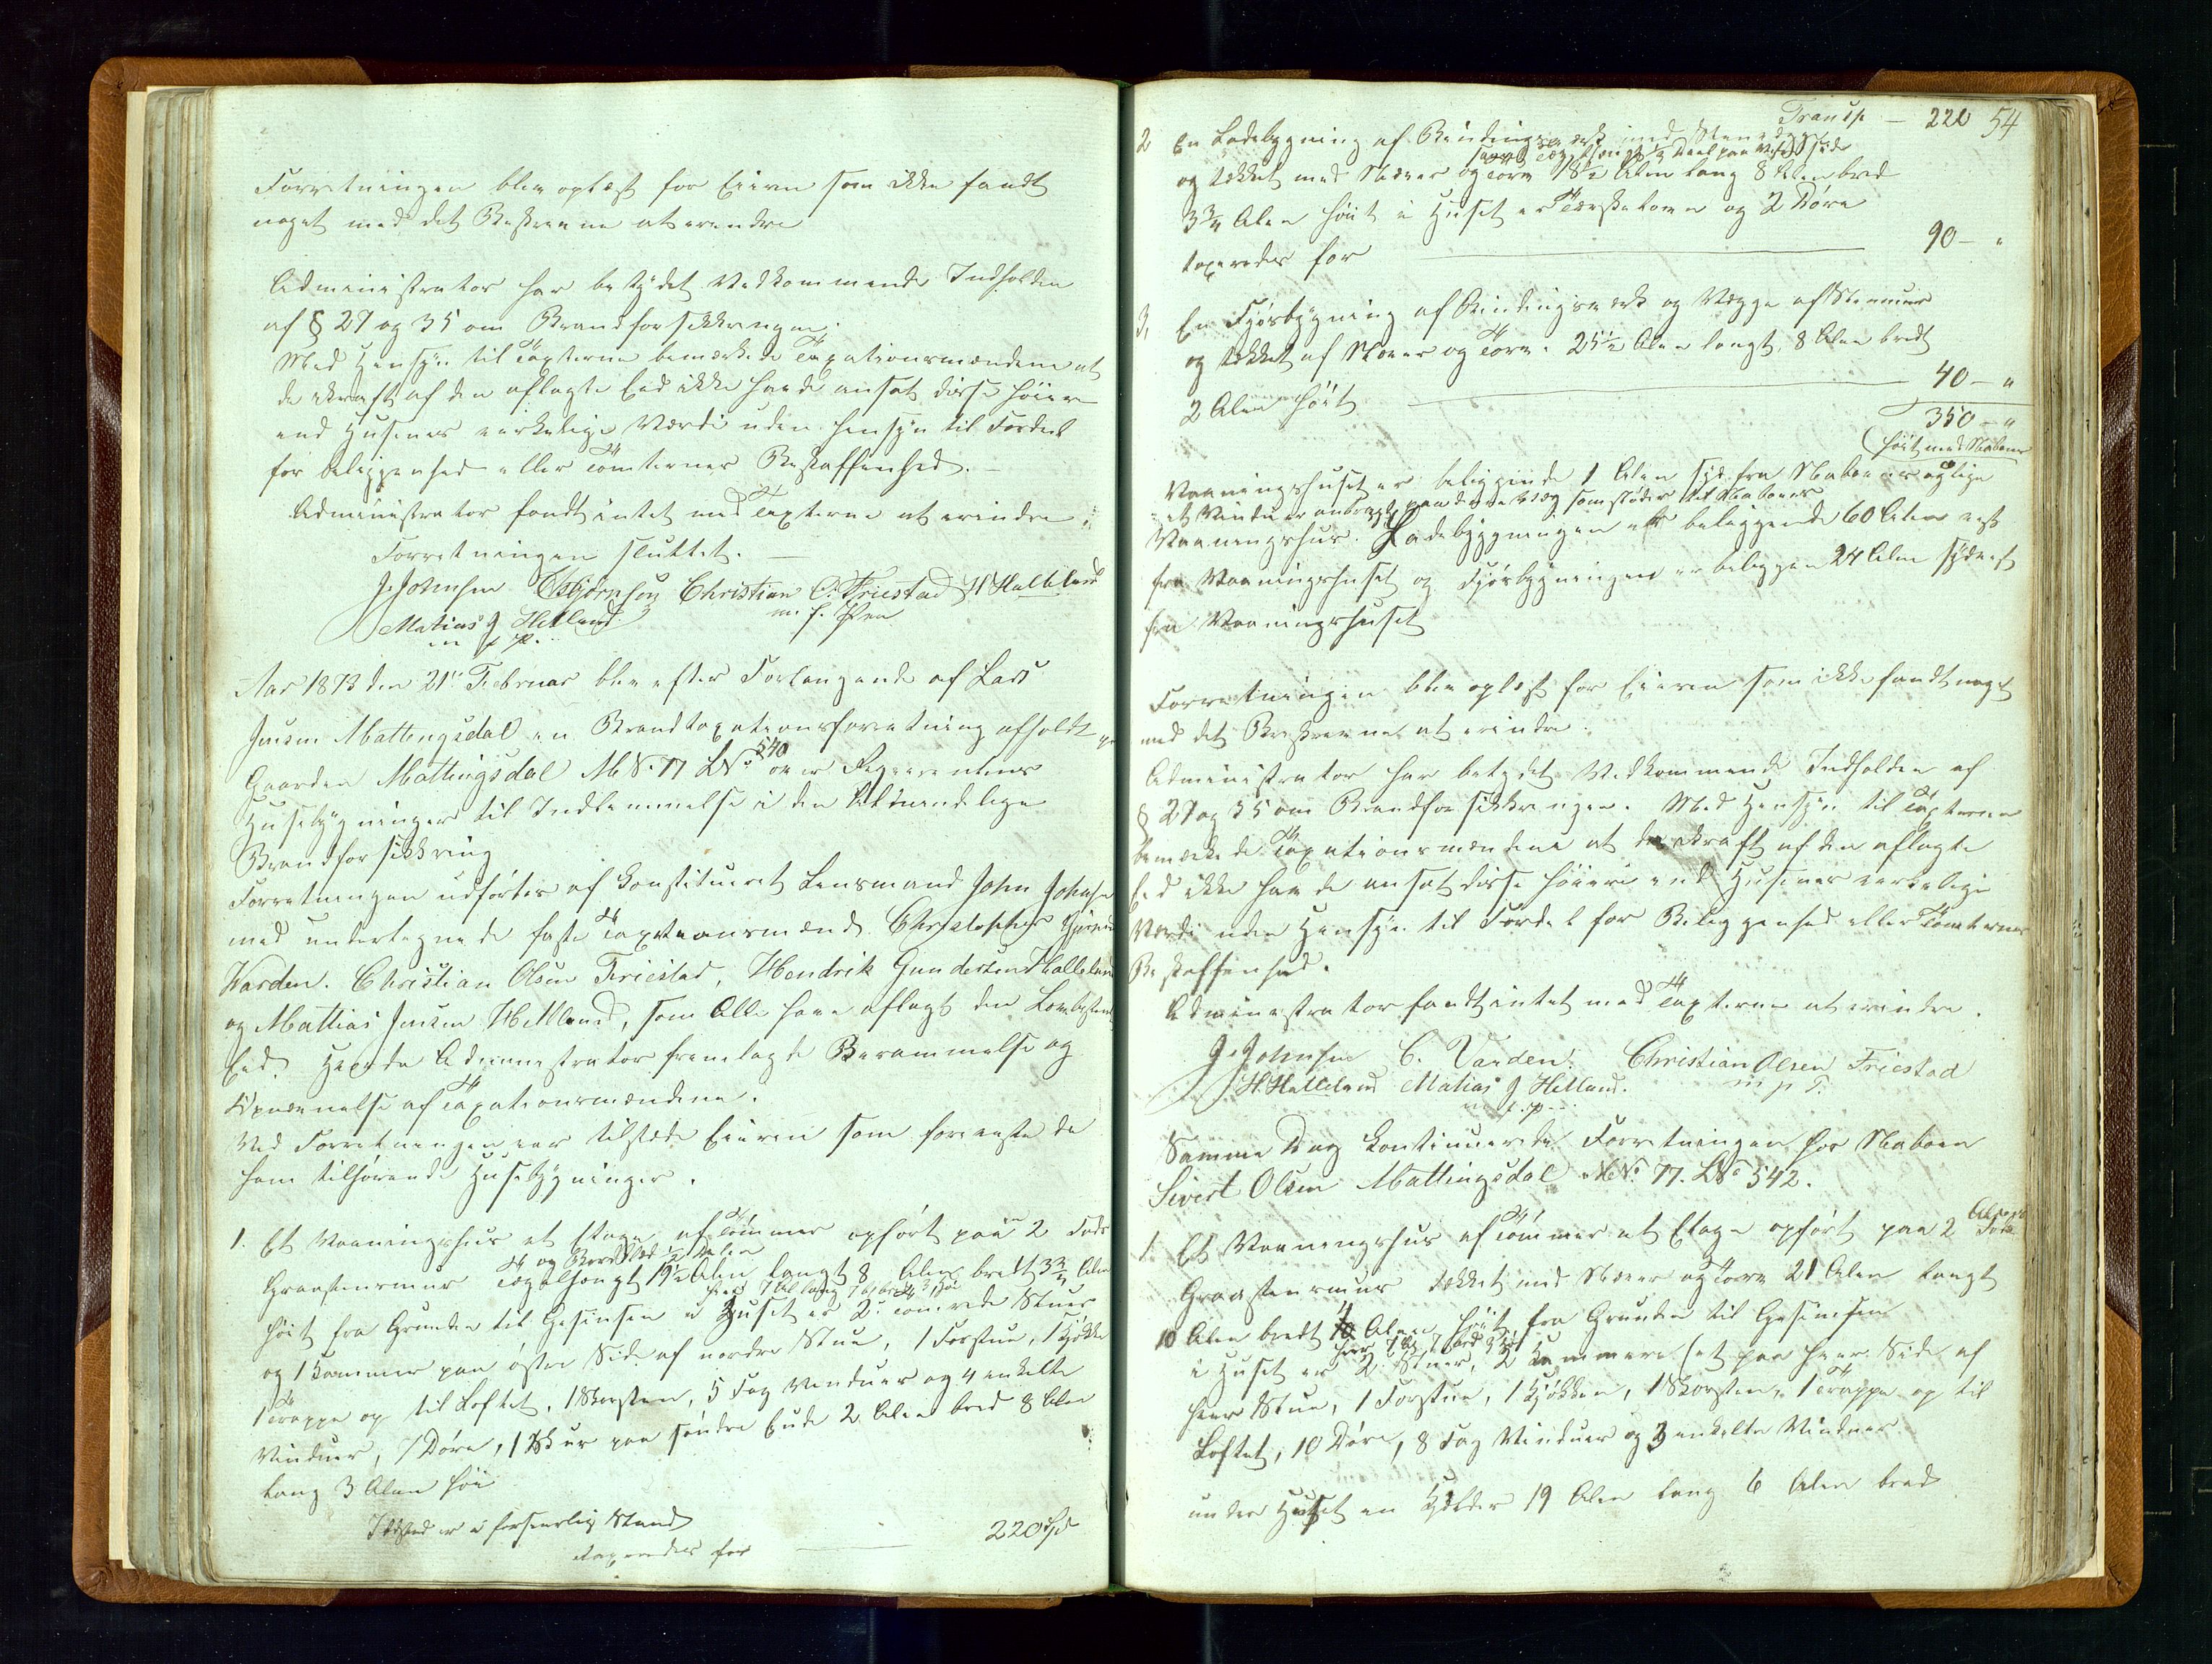 Forretningen blev oplæst for Eieren som ikke fandt
noget med det Beskrevne at erindre
Administrator har betydet Vedkommende Indholden
af § 27 og 35 om Brandforsikkringen.
Med Hensyn til Taxterne bemærkede Taxationsmændene at
de ikraft af den aflagte Eed ikke havde ansat disse høiere
end Husenes virkelige Værdi uden Hensyn til Fordeel
for Beliggenhed eller Tomternes Beskaffenhed.
Administrator fandt intet med Taxterne at erindre.
Forretningen sluttet.
J. Johnsen C Bjørnsen Christian O. Friestad H Halleland
m. f. Pen
Matias J Hetland
m f p.
Aar 1873 den 21de Februar blev efter Forlangende af Lars
Jensen Mattingsdal en Brandtaxationsforretning afholdt paa
Gaarden Mattingsdal M No. 77 LNo. 540 over Reqvirentens
Husebygninger til Indlemmelse i den Almindelige
Brandforsikkring
Forretningen udførtes af Constitueret Lensmand John Johnsen
med undertegnede faste Taxationsmænd Christopher Bjørnsen
Varden. Christian Olsen Friestad, Hendrik Gundersen Halleland
og Mattias Jensen Hetland, som Alle have aflagt den Lovbestemte
Eed. Administrator fremlagde Berammelse og
Opnævnelse af Taxationsmændene.
Ved Forretningen var tilstede Eieren som foreviste de
ham tilhørende Husebygninger.
1. Et Vaaningshus et Etage af Tømmer opført paa 2 Fods
Graastensmuur Tegelhængt og Bordklæd ½ Delen 19½ Alen langt 8 Alen bredt 3¾ Alen
høit fra Grunden til Gesimsen i Huset er 2 Stuer
og 1 Kammer paa østre Side af nordre Stue, 1 Forstue, 1 Kjøkken
1 Trappe op til Loftet, 1 Skorsten, 5 Fag Vinduer og 4 enkelte
Vinduer, 7 Døre, 1 Skur paa søndre Ende 2 Alen bred 8 Alen
lang 3 Alen høi
Ildsted er i forsvarlig Stand
taxeredes for 220 Spd
Transp — 220 54
2 En Ladebygning af Bindingsværk med
og tækket med Næver og Torv 18½ Alen lang 8 Alen bred
3¾ Alen høit i Huset er Tærskelove og 2 Døre
taxeredes for 90 – "
3, En Fjøsbygning af Bindingsværk og Vægge af Steenmuur
og tækket af Næver og Torv. 25½ Alen langt, 8 Alen bredt
2 Alen høit 40 – "
350 – "
Vaaningshuset er beliggende 1 Alen syd fra Naboens og lige (høit med Naboens
et Vindu er anbragt paa denne Væg som støder til Naboens
Vaaningshus. Ladebyggningen er beliggende 60 Alen
fra Vaaningshuset og Fjøsbygningen er beliggende 24 Alen sydvest
fra Vaaningshuset
Forretningen blev oplæst for Eieren som ikke fandt noget
med det Beskrevne at erindre.
Administrator har betydet Vedkommende Indholden af
§ 27 og 35 om Brandforsikkringen. Med Hensyn til Taxterne
bemærkede Taxationsmændene at de ikraft af den aflagte
Eed ikke havde ansat disse høiere end Husenes virkelige
Værdi uden Hensyn til Fordel for Beliggenhed eller Tomternes
Beskaffenhed.
Administrator fandt intet med Taxterne at erindre.
J. Johnsen C. Varden. Christian Olsen Friestad
H. Halleland Matias J Hetland. m p P.
m f. p
Samme Dag Kontinueredes Forretningen hos Naboen
Sivert Olsen Mattingsdal MNo. 77. LNo 542.
1. Et Vaaningshus af Tømmer et Etage opført paa 2
Graastensmuur tækket med Næver og Torv 21 Alen langt
10 Alen bredt 4 Alen høit fra Grunden til Gesimsen
i Huset er 2 Stuer, 2 Kammere (et paa hver Side af
hver Stue, 1 Forstue, 1 Kjøkken, 1 Skorsten, 1 Trappe op til
Loftet, 10 Døre, 8 Fag Vinduer og 3 enkelte Vinduer
under Huset en Kjelder 19 Alen lang 6 Alen bred